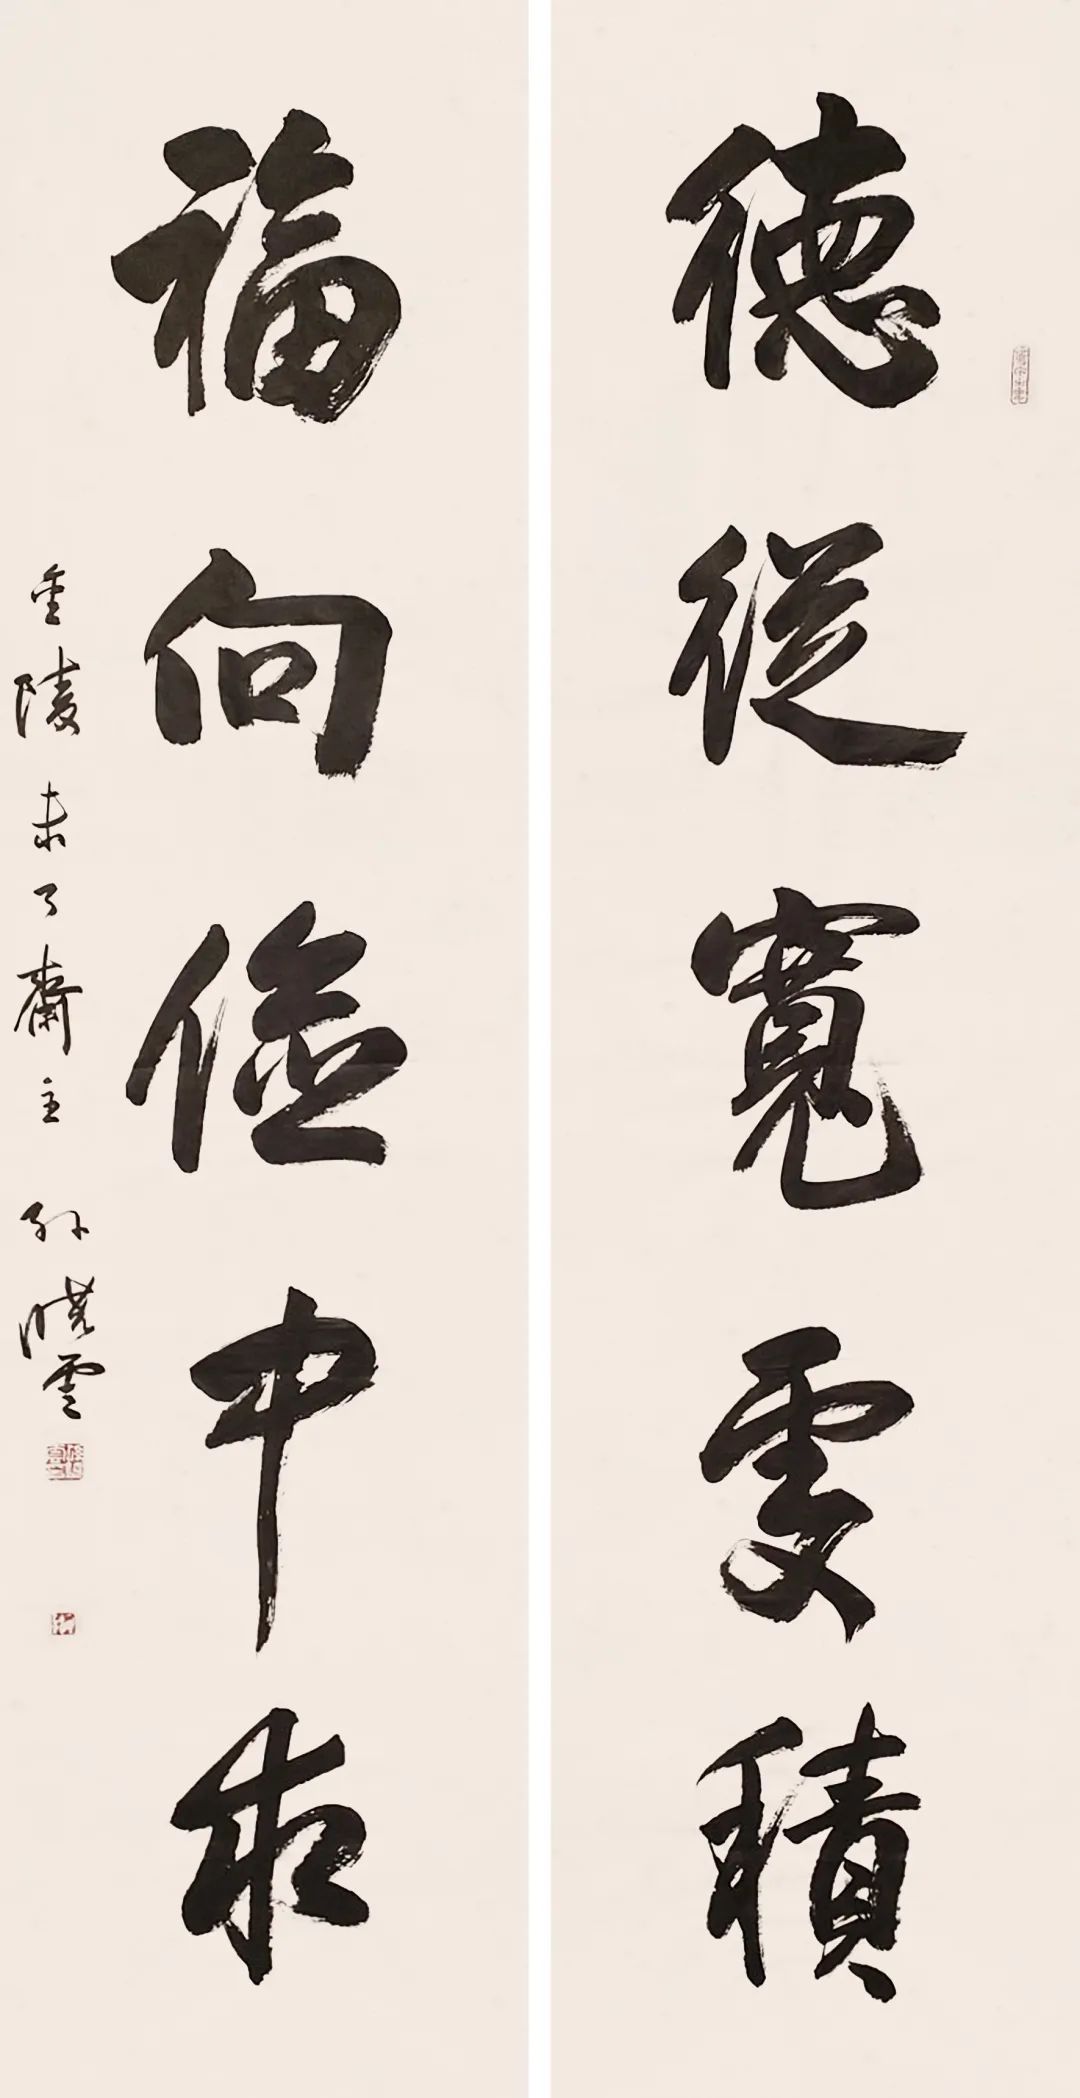 德從寬處積
福向儉中求
金陵未了齋主 孫曉雲